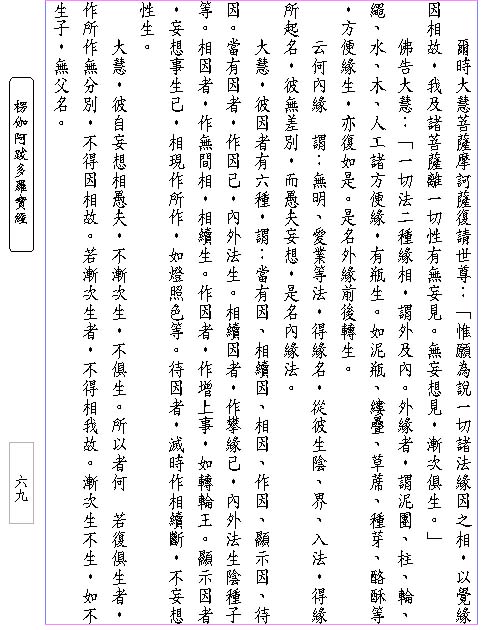 爾時大慧菩薩摩訶薩復請世尊：「惟願為說一切諸法緣因之相，以覺緣
因相故，我及諸菩薩離一切性有無妄見。無妄想見，漸次俱生。」
佛告大慧：「一切法二種緣相，謂外及內。外緣者，謂泥團、柱、輪、
繩、水、木、人工諸方便緣，有瓶生。如泥瓶、縷疊、草蓆、種芽、酪酥等
，方便緣生，亦復如是。是名外緣前後轉生。
云何內緣　謂：無明、愛業等法，得緣名，從彼生陰、界、入法，得緣
所起名，彼無差別，而愚夫妄想，是名內緣法。
大慧，彼因者有六種，謂：當有因、相續因、相因、作因、顯示因、待
因。當有因者，作因已，內外法生。相續因者，作攀緣已，內外法生陰種子
等。相因者，作無間相，相續生。作因者，作增上事，如轉輪王。顯示因者
，妄想事生已，相現作所作，如燈照色等。待因者，滅時作相續斷，不妄想
性生。
大慧，彼自妄想相愚夫，不漸次生，不俱生。所以者何　若復俱生者，
作所作無分別，不得因相故。若漸次生者，不得相我故。漸次生不生，如不
生子，無父名。
楞伽阿跋多羅寶經
六九